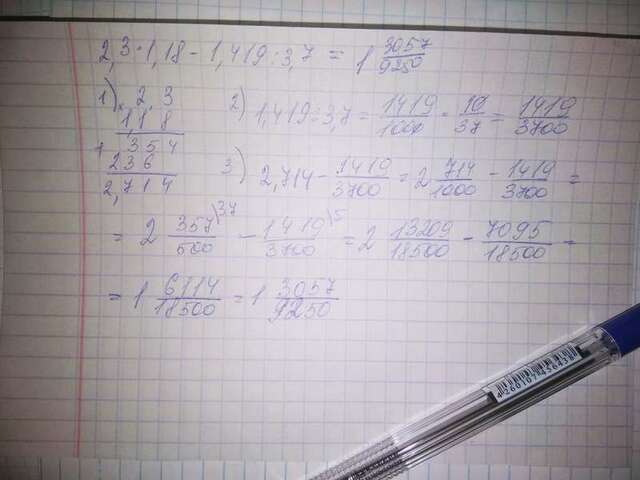 2,3 · 1,18 - 1,419 : 3,7 = 1 3057/9250
1) × 2,3
1,18
+ 354
236
2,714
2) 1,419 : 3,7 = 1419/1000 · 10/37 = 1419/3700
3) 2,714 - 1419/3700 = 2 714/1000 - 1419/3700 =
= 2 357\37/500 - 1419\5/3700 = 2 13209/18500 - 7095/18500 =
= 1 6114/18500 = 1 3057/9250
4260107436438